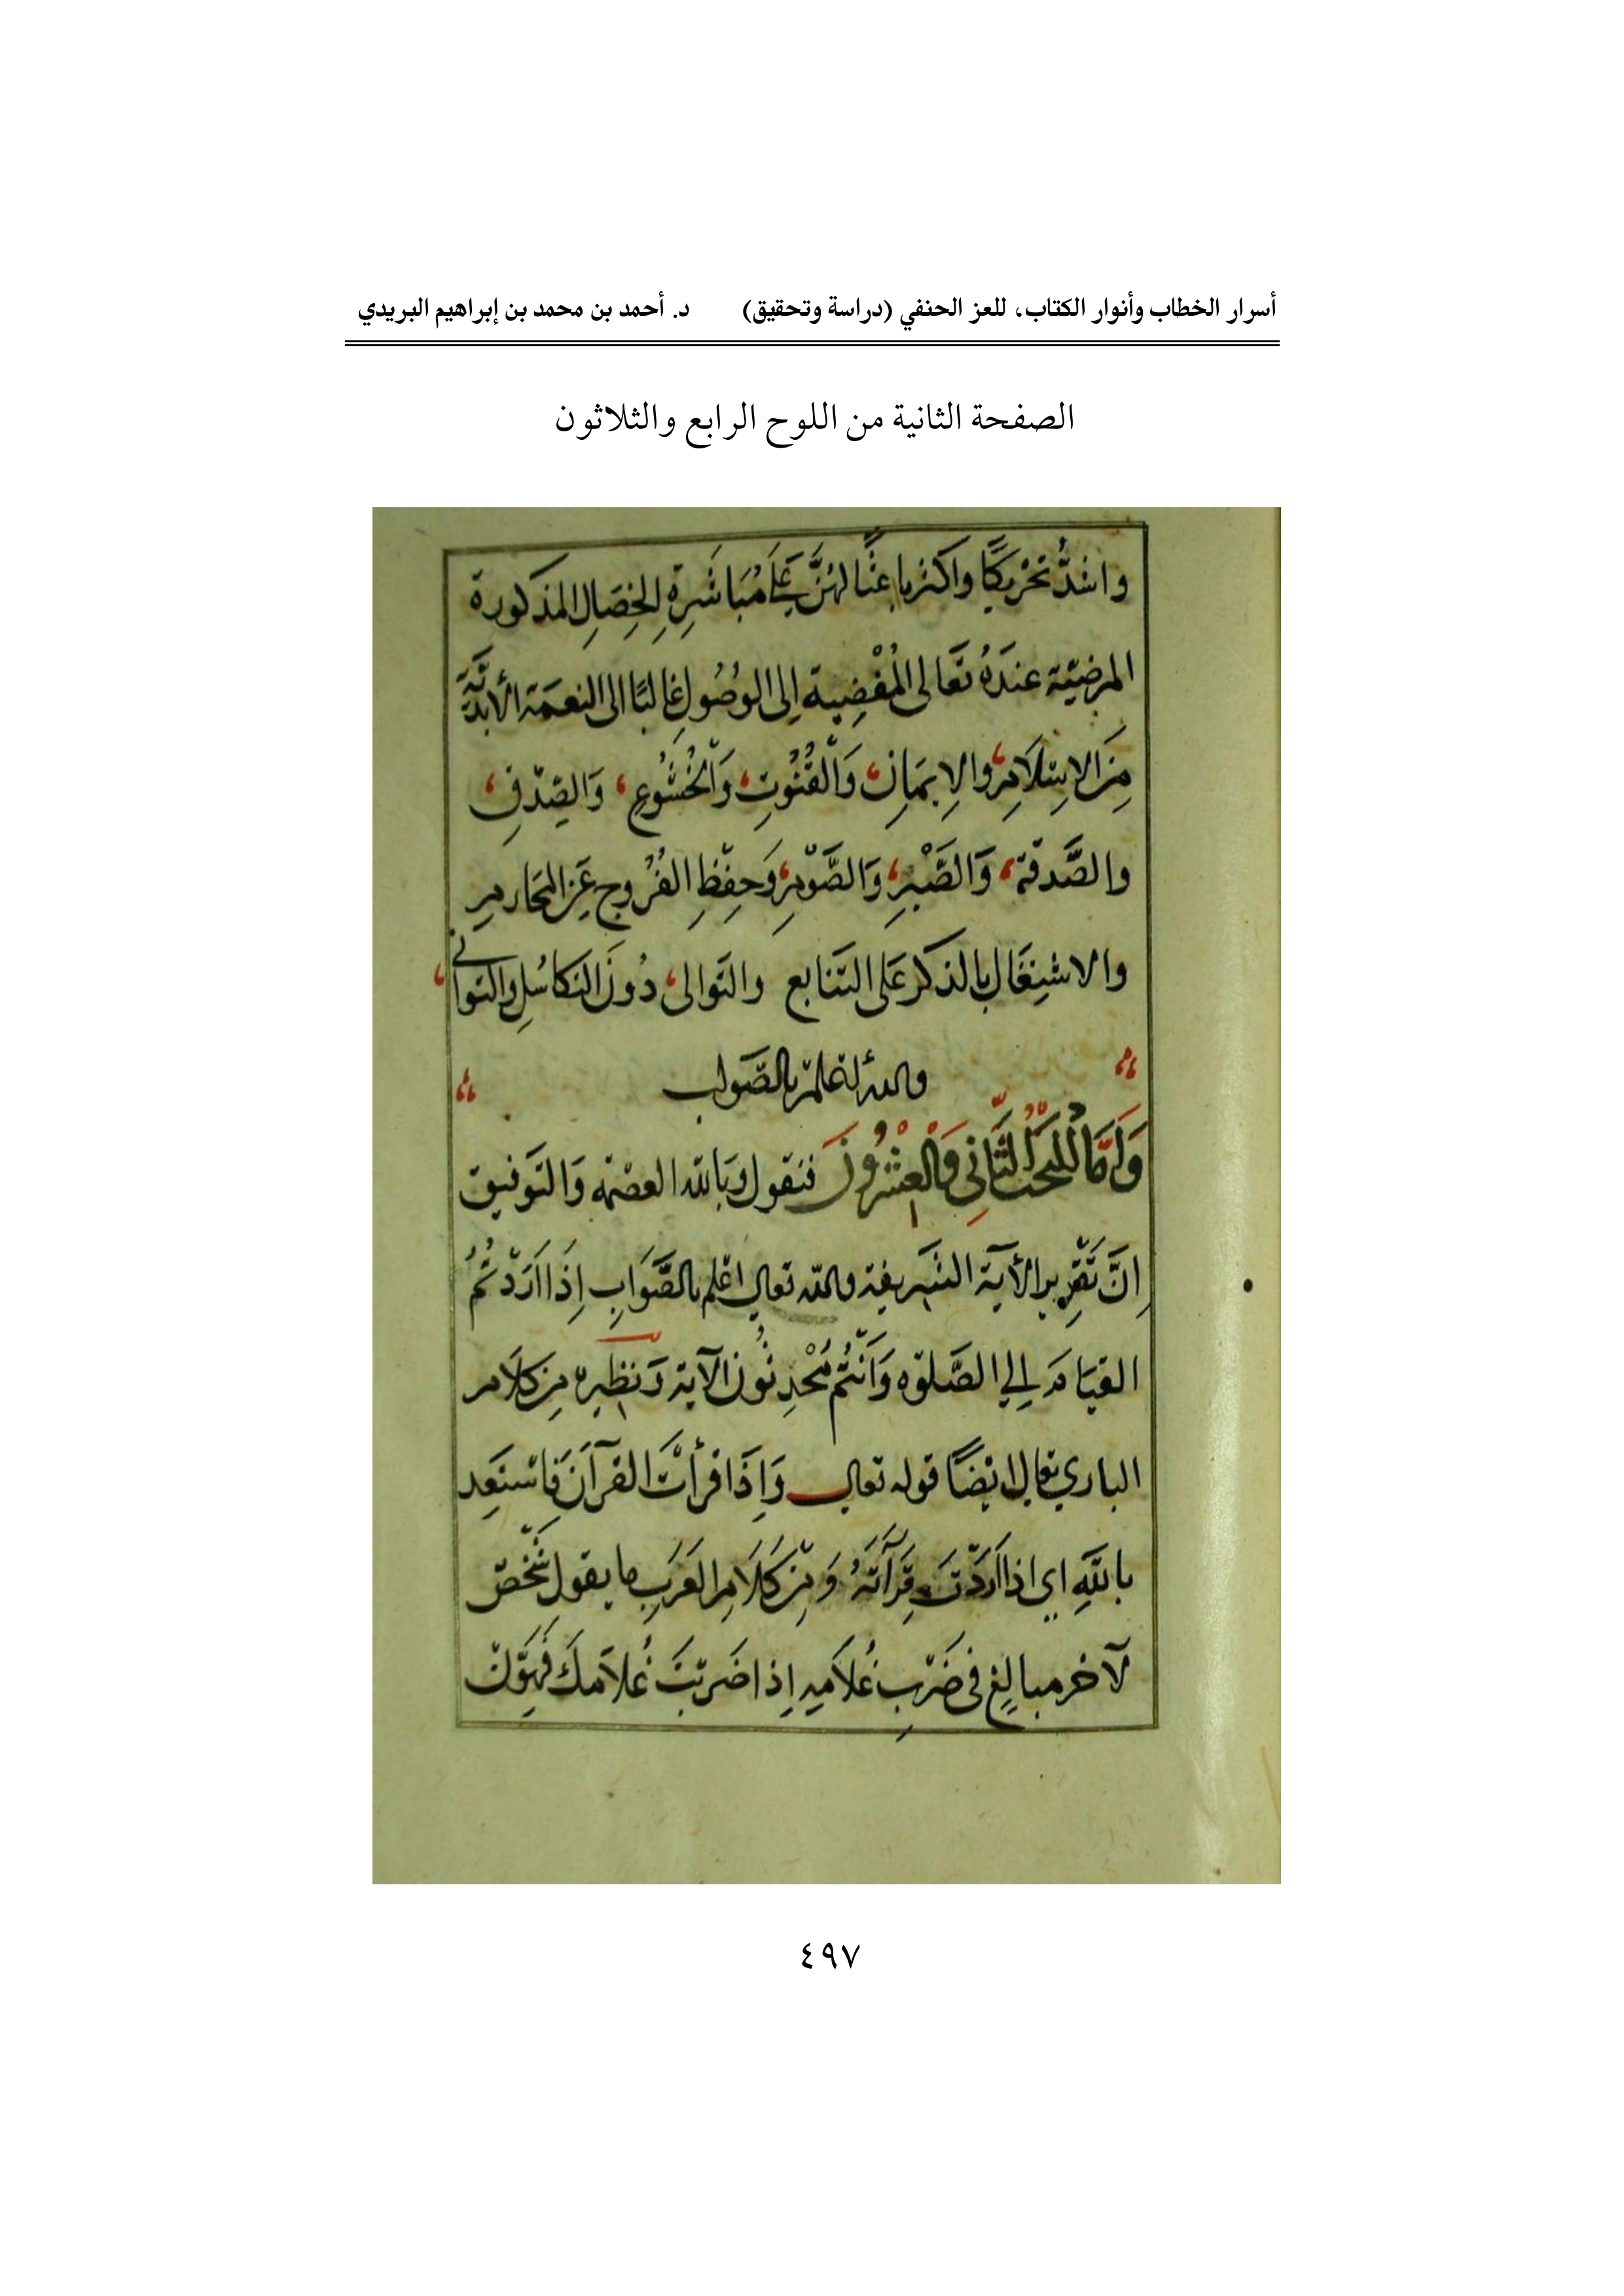 أسرار الخطاب وأنوار الكتاب، للعز الحنفي (دراسة وتحقيق) د. أحمد بن محمد بن إبراهيم البريدي
الصفحة الثانية من اللوح الرابع والثلاثون
واشدُّ تحْرِيكًا واكثر باعثًا لهنَّ عَلَى مُبَاشَرِةِ الخِصَالِ المذكورة
المرضيّة عندَهُ تَعَالى المُفْضِية إلى الوُصُولِ غالبًا الى النعمَة الأبديَّة
مِنَ الاسْلَامِ والإيمَانِ وَالْقُنُوتِ وَالْخُشُوعِ وَالصِّدْقِ
والصَّدقة وَالصَّبْرِ وَالصَّوْمِ وَحِفْظِ الفُرُوجِ عَنِ المحَارمِ
والاشتِغَالِ بالذكر عَلى التتَابع والتَوالى دُونَ التكاسُلِ والتوانى
والله اعْلمُ بالصَّواب
وَأمَّا المبْحَثُ الثَّانِى وَالْعِشْرُونَ فنقول وَبالله العصْمة وَالتَوفيق
إنَّ تَقْرِير الأية الشَّريفة والله تعالى اعْلم بالصَّوَابِ إذَا ارَدْتُمُ
القيَامَ إلي الصَّلوٰة وَأنْتُمْ مُحْدِثُونَ الآية وَنظيره مِن كلَام
الباري تعالى ايْضًا قوله تعالى وَإِذَا قرأتَ القرآنَ فَاسْتعِذ
باللهِ اي اذا اَرَدْتَ قِرَآتَهُ وَمِنْ كَلَامِ العَرَبِ ما يقول شَخْصٌ
لآخر مبالِغٍ فى ضَرْبِ غُلَامِهِ إذا ضَرَبْتَ غُلَامكَ فَهَوِّنْ
٤٩٧